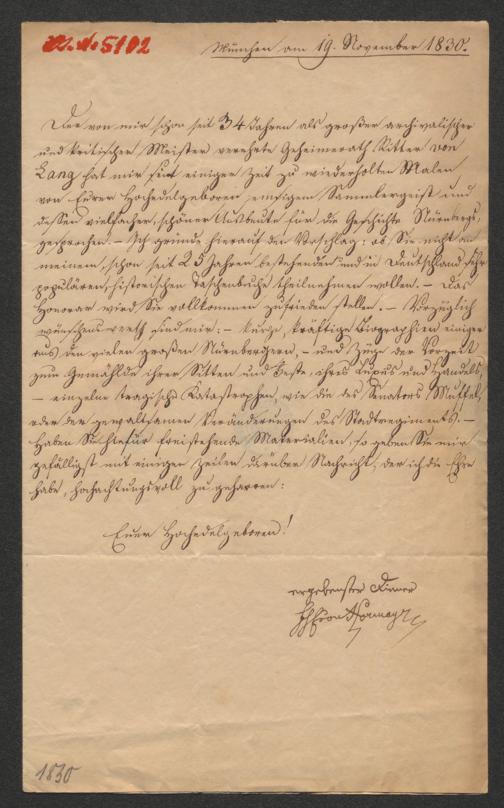 A. No 5102
München am 19. November 1830.
Der von mir schon seit 34 Jahren als großer archivalischer
und kritischer Meister verehrte Geheimerath Ritter von
Lang hat mir seit einiger Zeit zu wiederholten Malen
von Eurer Hochedelgeboren emsigem Sammlergeist und
dessen vielfacher, schöner Ausbeute für die Geschichte Nürnbergs,
gesprochen. – Ich gründe hierauf den Vorschlag: ob Sie nicht an
meinem, schon seit 25 Jahren bestehenden und in Deutschland sehr
populären, historischen Taschenbuche theilnehmen wollen. – Das
Honorar wird Sie vollkommen zufrieden stellen. – Vorzüglich
wünschenswerth sind mir: – kurze, kräftige Biographien einiger
aus den vielen großen Nürnbergern, – und Züge der Vorzeit
zum Gemählde ihrer Sitten und Feste, ihres Luxus und Handels,
– einzelne tragische Katastrophen, wie die des Senators Muffel,
oder der gewaltsamen Veränderungen des Stadtregiments. –
Haben Sie hiefür freistehende Materialien, so geben Sie mir
gefälligst mit einigen Zeilen darüber Nachricht, der ich die Ehre
habe, hochachtungsvoll zu geharren:
Euer Hochedelgeboren!
ergebenster Diener
Hormayr
1830